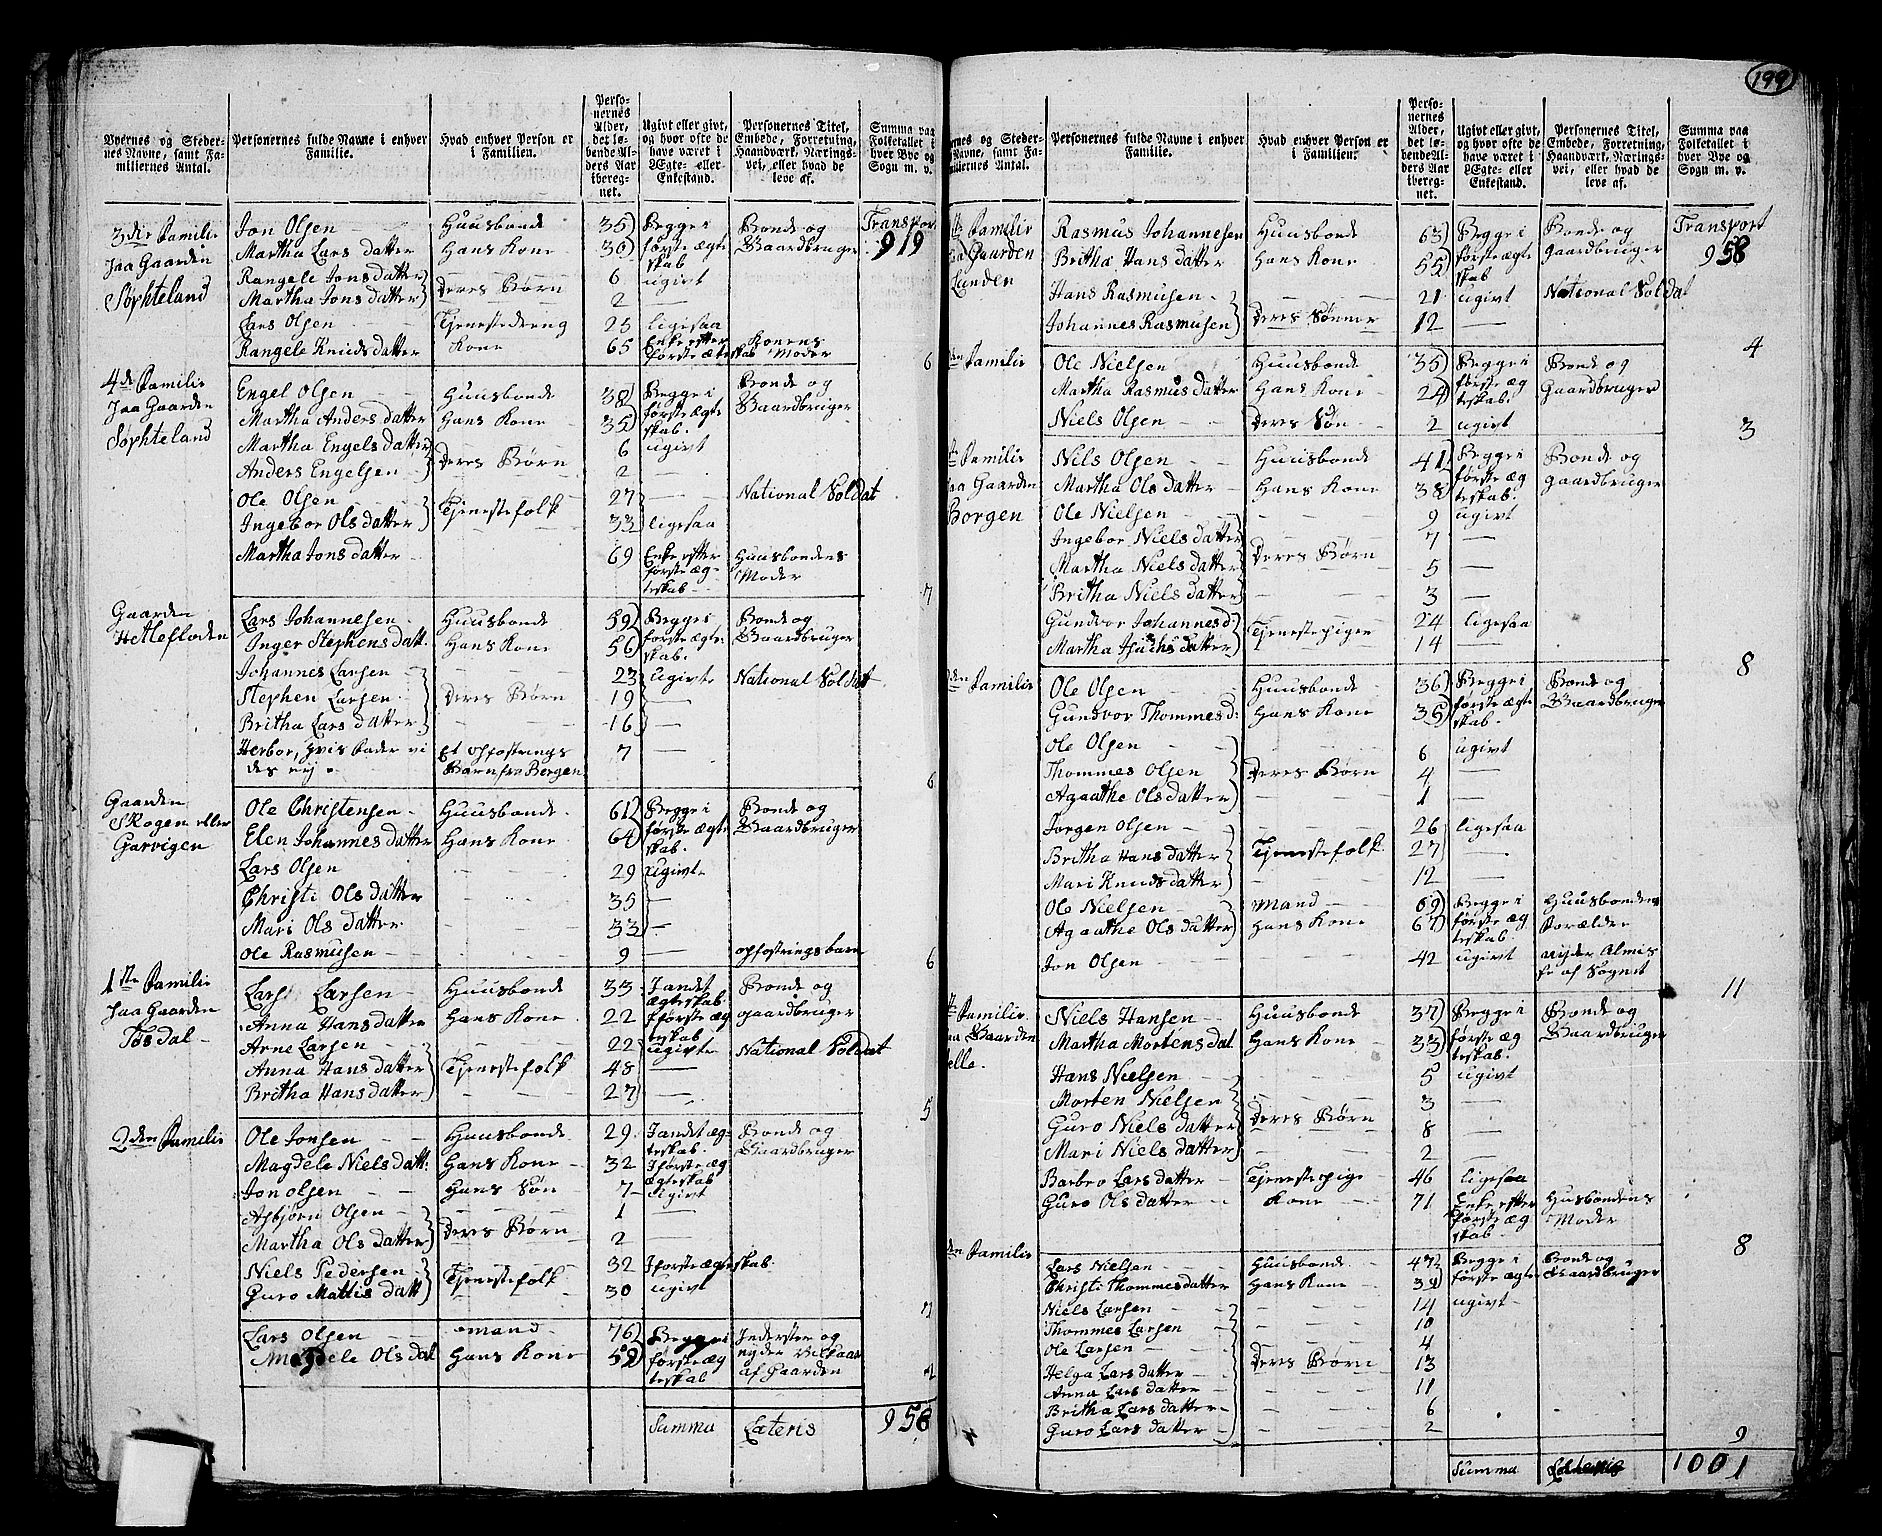 199
Byernes og Stedernes Navne, samt Familiernes Antal. | Personernes fulde Navne i enhver Familie. | Hvad enhver Person er i Familien. | Personernes Alder, det løbende Alders Aar iberegnet. | Ugivt eller givt, og hvor ofte de have været i Ægte- eller Enkestand. | Personernes Titel, Embede, Forretning, Haandværk, Næringsvei, eller hvad de leve af. | Summa paa Folketallet i hver Bye og Sogn m. v.
Transport 919
3die Familie paa Gaarden Søphteland
Jon Olsen | Huusbonde | 35 | Begge i første ægteskab | Bonde og Gaardbruger
Martha Lars datter | Hans Kone | 30
Rangele Jons datter | Deres Børn | 6 | ugivt
Martha Jons datter | 2 | —
Lars Olsen | Tjenestedreng | 25 | ligesaa
Rangele Knuds datter | Kone | 65 | Enke efter første ægteskab | Konens Moder | 6
4de Familie paa Gaarden Søphteland
Engel Olsen | Huusbonde | 38 | Begge i første ægteskab. | Bonde og Gaardbruger
Martha Anders datter | Hans Kone | 35
Martha Engels datter | Deres Børn | 6 | ugivt
Anders Engelsen | 2
Ole Olsen | Tjenestefolk | 27 | — | National Soldat
Ingebor Ols datter | 33 | ligesaa
Martha Jons datter | 69 | Enke efter første ægteskab | Huusbondens Moder | 7
Gaarden Hetlefloden
Lars Johannesen | Huusbonde | 59 | Begge i første ægteskab. | Bonde og Gaardbruger
Inger Stephens datt. | Hans Kone | 56
Johannes Larsen | Deres Børn | 23 | ugivte | National Soldat
Stephen Larsen | 19 | —
Britha Lars datter | 16 | —
Herbor, hvis fader vides eij | Et opfostrings Barn fra Bergen | 7 | — | 6
Gaarden Skogen eller Garvigen
Ole Christensen | Huusbonde | 61 | Begge i første ægteskab. | Bonde og Gaardbruger
Elen Johannes datter | Hans Kone | 64
Lars Olsen | 29 | ugivte
Christi Ols datter | 35 | —
Mari Ols datter | 33 | —
Ole Rasmussen | 9 | — | opfostringsbarn | 6
1ste Familie paa Gaarden Tøsdal
Lars Larsen | Huusbonde | 33 | I andet ægteskab | Bonde og gaardbruger
Anna Hans datter | Hans Kone | 22 | I første ægteskab
Arne Larsen | Tjenestefolk | 22 | ugivte | National Soldat
Anna Hans datter | 48 | —
Britha Hans datter | 27 | 5
2den Familie
Ole Jonsen | Huusbonde | 29 | I andet ægteskab. | Bonde og Gaardbruger
Magdele Niels datt: | Hans Kone | 32 | I første ægteskab
Jon Olsen | Hans Søn | 7 | ugivt
Asbjørn Olsen | Deres Børn | 1 | —
Martha Ols datter | 2
Niels Pedersen | Tjenestefolk | 32 | I første ægteskab.
Guro Mattis datt | 30 | ugivt | 7
Lars Olsen | mand | 76 | Begge i første ægteskab | Inderster og nyder Vilkaar af Gaarden
Magdele Ols dat | Hans Kone | 59 | 2
Summa Lateris 958
Byernes og Stedernes Navne, samt Familiernes Antal. | Personernes fulde Navne i enhver Familie. | Hvad enhver Person er i Familien. | Personernes Alder, det løbende Alders Aar iberegnet. | Ugivt eller givt, og hvor ofte de have været i Ægte- eller Enkestand. | Personernes Titel, Embede, Forretning, Haandværk, Næringsvei, eller hvad de leve af. | Summa paa Folketallet i hver Bye og Sogn m. v.
Transport 958
Familie paa Gaarden Lunden
Rasmus Johannesen | Huusbonde | 63 | Begge i første ægteskab | Bonde og gaardbruger
Britha Hans datter | Hans Kone | 55
Hans Rasmusen | Deres Sønner | 21 | ugivt | National Soldat
Johannes Rasmusen | 12 | — | 4
den Familie
Ole Nielsen | Huusbonde | 35 | Begge i første ægteskab. | Bonde og Gaardbruger
Martha Rasmus datter | Hans Kone | 24
Niels Olsen | Deres Søn | 2 | ugivt | 3
Familie paa Gaarden Borgen
Nils Olsen | Huusbonde | 41 | Begge i første ægteskab. | Bonde og gaardbruger
Martha Ols datter | Hans Kone | 38
Ole Nielsen | Deres Børn | 9 | ugivt
Ingebor Niels datter | 7 | —
Martha Niels datter | 5 | —
Britha Niels datter | 3 | —
Gundvor Johannes d | Tjenestepiger | 24 | ligesaa
Martha datter | 14 | — | 8
den Familie
Ole Olsen | Huusbonde | 36 | Begge i første ægteskab. | Bonde og Gaardbruger
Gundvor Thommes d: | Hans Kone | 35
Ole Olsen | Deres Børn | 6 | ugivt
Thommes Olsen | 4 | —
Agaathe Ols datter | 1 | —
Jørgen Olsen | Tjenestefolk | 26 | ligesaa
Britha Hans datter | 27 | —
Mari Knuds datter | 12 | —
Ole Nielsen | Mand | 69 | Begge i første ægteskab | Huusbondens Forældre
Agaathe Ols datter | Hans Kone | 67
Jon Olsen | 42 | ugivt | nyder Almisse af Sognet | 11
Familie paa Gaarden
Niels Hansen | Huusbonde | 37 | Begge i første ægteskab. | Bonde og Gaardbruger
Martha Mortens dat. | Hans Kone | 33
Hans Nielsen | Deres Børn | 5 | ugivt
Morten Nielsen | 3 | —
Guro Niels datter | 8
Mari Niels datter | 2 | —
Barbro Lars datter | Tjenestepige | 46 | ligesaa
Guro Ols datter | Kone | 71 | Enke efter første ægteskab | Husbondens Moder | 8
den Familie
Lars Nielsen | Huusbonde | 47 | Begge i første ægte | Bonde og Gaardbruger
Christi Thommes datter | Hans Kone | 39
Niels Larsen | Deres Børn | 14 | ugivt
Thommes Larsen | 10
Ole Larsen | 4
Helga Lars datter | 13
Anna Lars datter | 11
Britha Lars datter | 6
Guro Lars datter | 2 | 9
Summa Lateris 1001